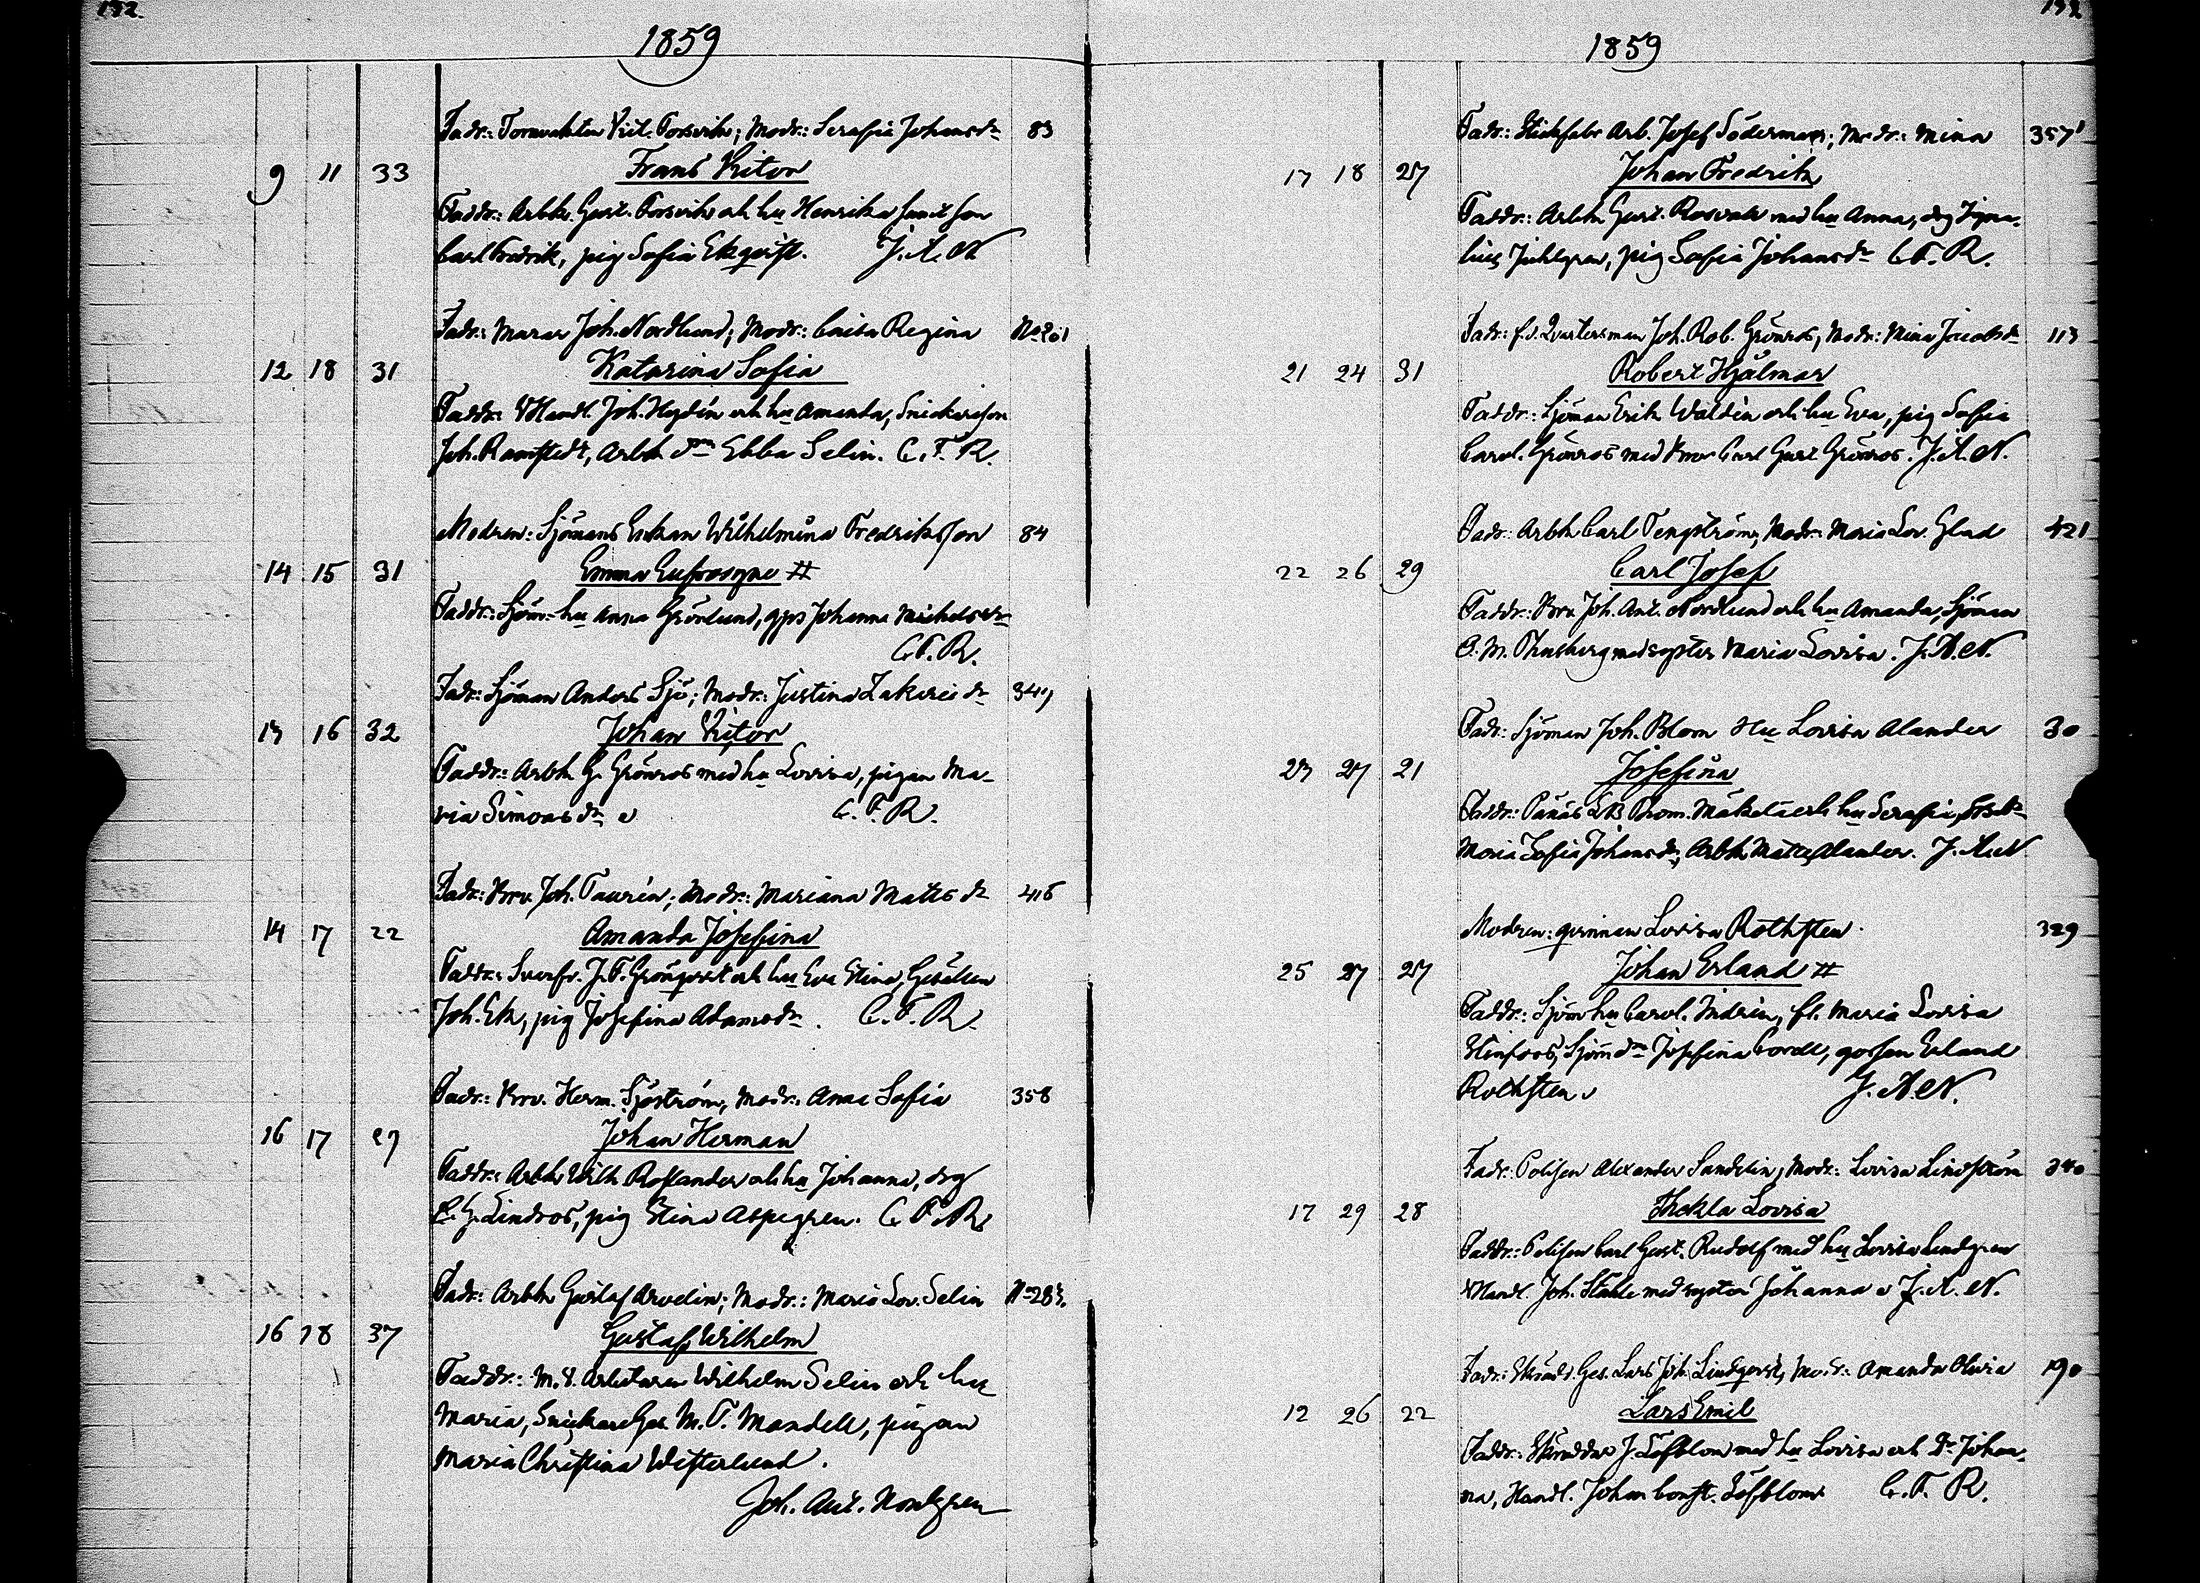 132.
1859
Fadr: Tornvakten Vict. Forsvik; Modr: Serafia Johansdr 83
9 11 33 Frans Victor
Faddr: Arbk. Gust. Forsvik och hu Henrika samt son
Carl Fredrik, pig Sofia Ekqvist. J. A. N
Fadr: Murar Joh. Nordlund; Modr: Caisa Regina No 201
12 18 31 Katarina Sofia
Faddr: VHandl. Joh. Hydén och hu Amanda, Snickareson
Joh. Ramstedt, Arbk dr Ebba Selin. C. F. R.
Modren: Sjömans Enkan Wilhelmina Fredriksson 84
14 15 31 Emma Eufrosyne #
Faddr: Sjöm. hu Anna Grönlund, gps Johanna Michelsdr
C. F. R.
Fadr: Sjöman Anders Sjö; Modr: Justina Zakrisdr 349
13 16 32 Johan Victor
Faddr: Arbk G. Grönros med hu Lovisa, pigan Ma-
ria Simonsdr C. F. R.
Fadr: Joh. Taurén; Modr: Mariana Matts dr 416
14 17 22 Amanda Josefina
Faddr: J. F. Grönqvist och hu Eva Stina, Gesällen
Joh. Ek, pig Josefina Adamsdr. C. F. R.
Fadr: Herm. Sjöström; Modr: Anna Sofia 358
16 17 27 Johan Herman
Faddr: Arbk Wilh. Roslander och hu Johanna, drg
C. G. Lindros, pig Stina Aspegren. C. F. R.
Fadr: Arbk Gustaf Arvelin; Modr: Maria Lov. Selin No 283.
16 18 37 Gustaf Wilhelm
Faddr: Arbetaren Wilhelm Selin och hu
Maria, Snickare Ges. M. F. Mandell, pigan
Maria Christina Westerlund.
Joh. Ant. Nordgren
132
1859
Fadr: Arb. Josef Söderman; Modr: Mina 357
17 18 27 Johan Fredrik
Faddr: Arbk Gust. Rosvall med hu Anna, drg
pig Sofia Johansdr C. F. R.
Fadr: f.d. Qvartersman Joh. Rob. Grönros; Modr: Mina Jacobsdr 113
21 24 31 Robert Hjalmar
Faddr: Sjöman Erik Waldén och hu Eva, pig Sofia
Carol. Grönros med Carl Gust Grönros. J. A. N.
Fadr: Arbk Carl Tengström; Modr: Maria Lov. Glad 421
22 26 29 Carl Josef
Faddr: Joh. Ant. Nordlund och hu Amanda, Sjöman
G. M. Thusberg med syster Maria Lovisa. J. A. N.
Fadr: Sjöman Joh. Blom Hu Lovisa Alander 30
23 27 21 Josefina
Faddr: Mäkelä och hu Serafia,
Maria Sofia Johansdr, Arbk Matts Alander. J. A. N
Modren: qvinnan Lovisa Rothsten. 329
25 27 27 Johan Erland #
Faddr: Sjöm hu Carol. Indrén, fl. Maria Lovisa
Winfors, Sjöm dr Josefina Cordl, gossen Erland
Rothsten J. A. N.
Fadr: Polisen Alexander Sandelin; Modr: Lovisa Lindström 340
17 29 28 Thekla Lovisa
Faddr: Polisen Carl Gust. Rudolf med hu Lovisa Lindgren
VHandl. Joh. Ståhle med syster Johanna J. A. N.
Fadr: Ges. Lars Joh. Lindqvist; Modr: Amanda Olivia 190
12 26 22 Lars Emil
Faddr: J. Löfblom med hu Lovisa och Dr Johan-
na, Handl. Johan Const. Löfblom C. F. R.